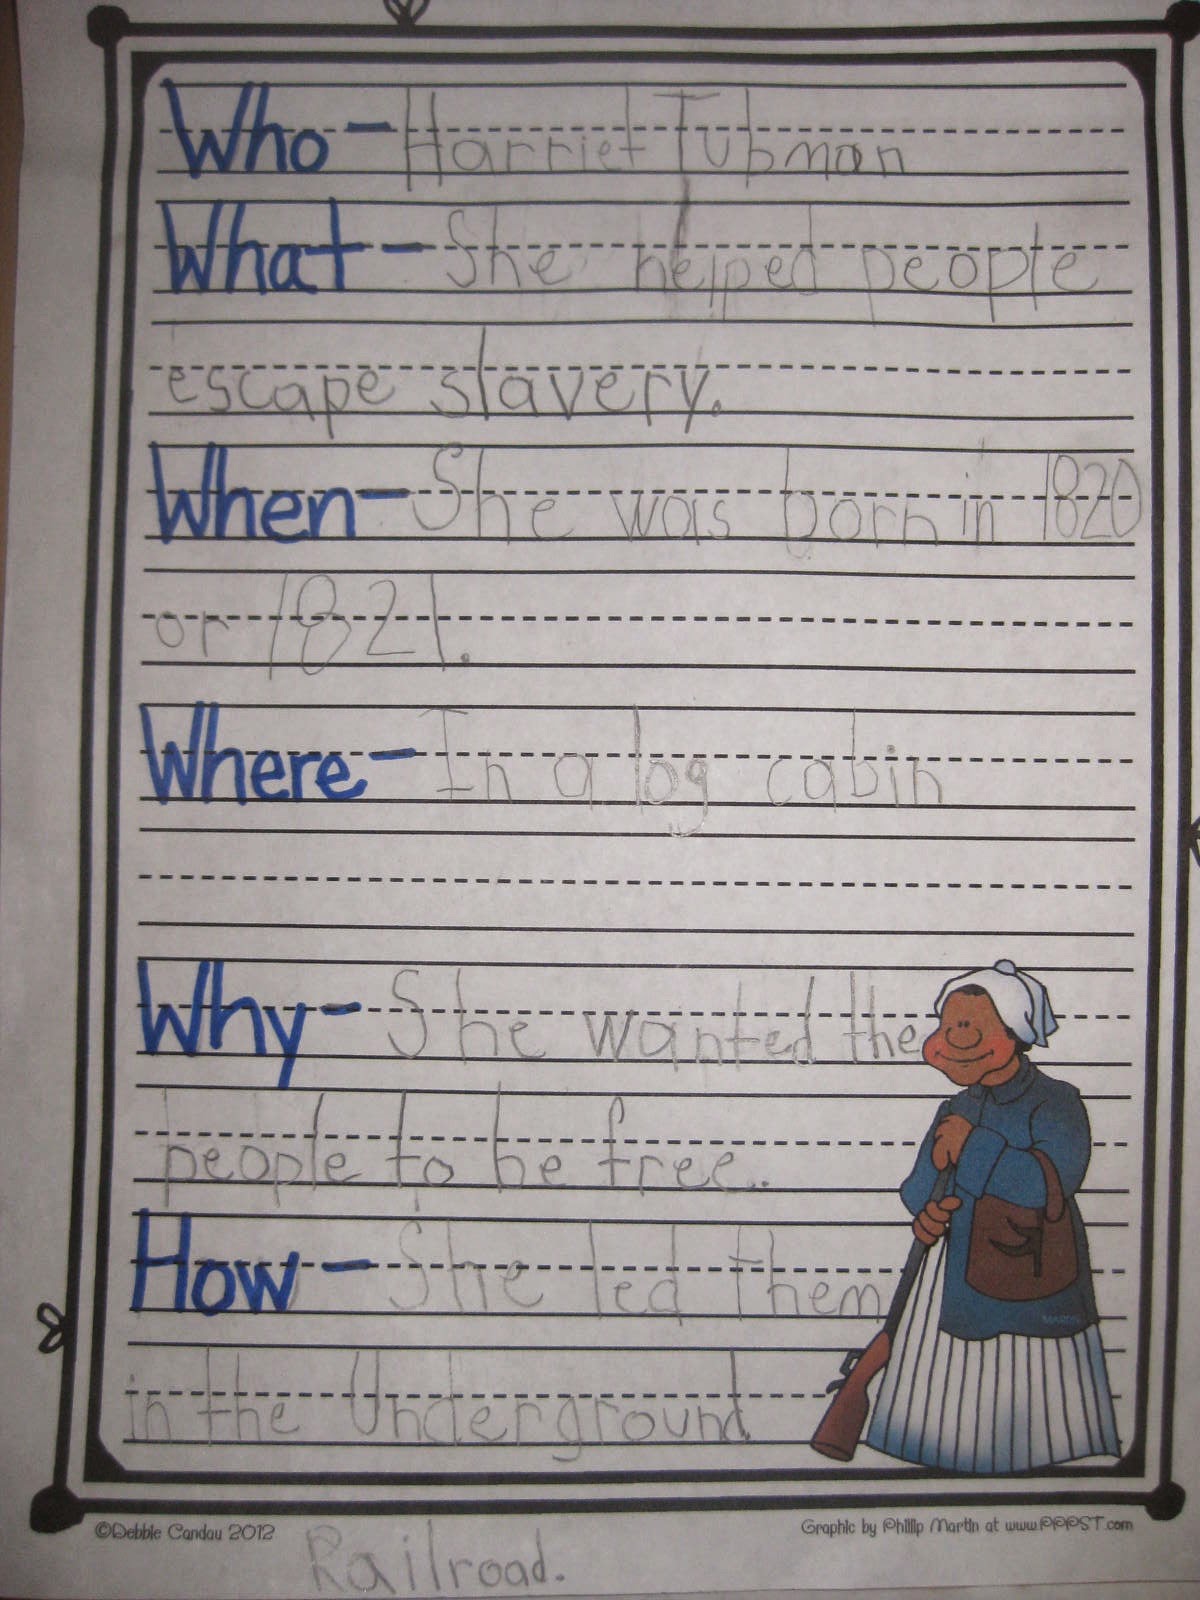 Who - Harriet Tubman
What - She helped people
escape slavery.
When - She was born in 1820
or 1821.
Where - In a log cabin
Why - She wanted the
people to be free.
How - She led them
MARTIN
in the Underground
©Debbie Candau 2012
Graphic by Phillip Martin at www.PPPST.com
Railroad.